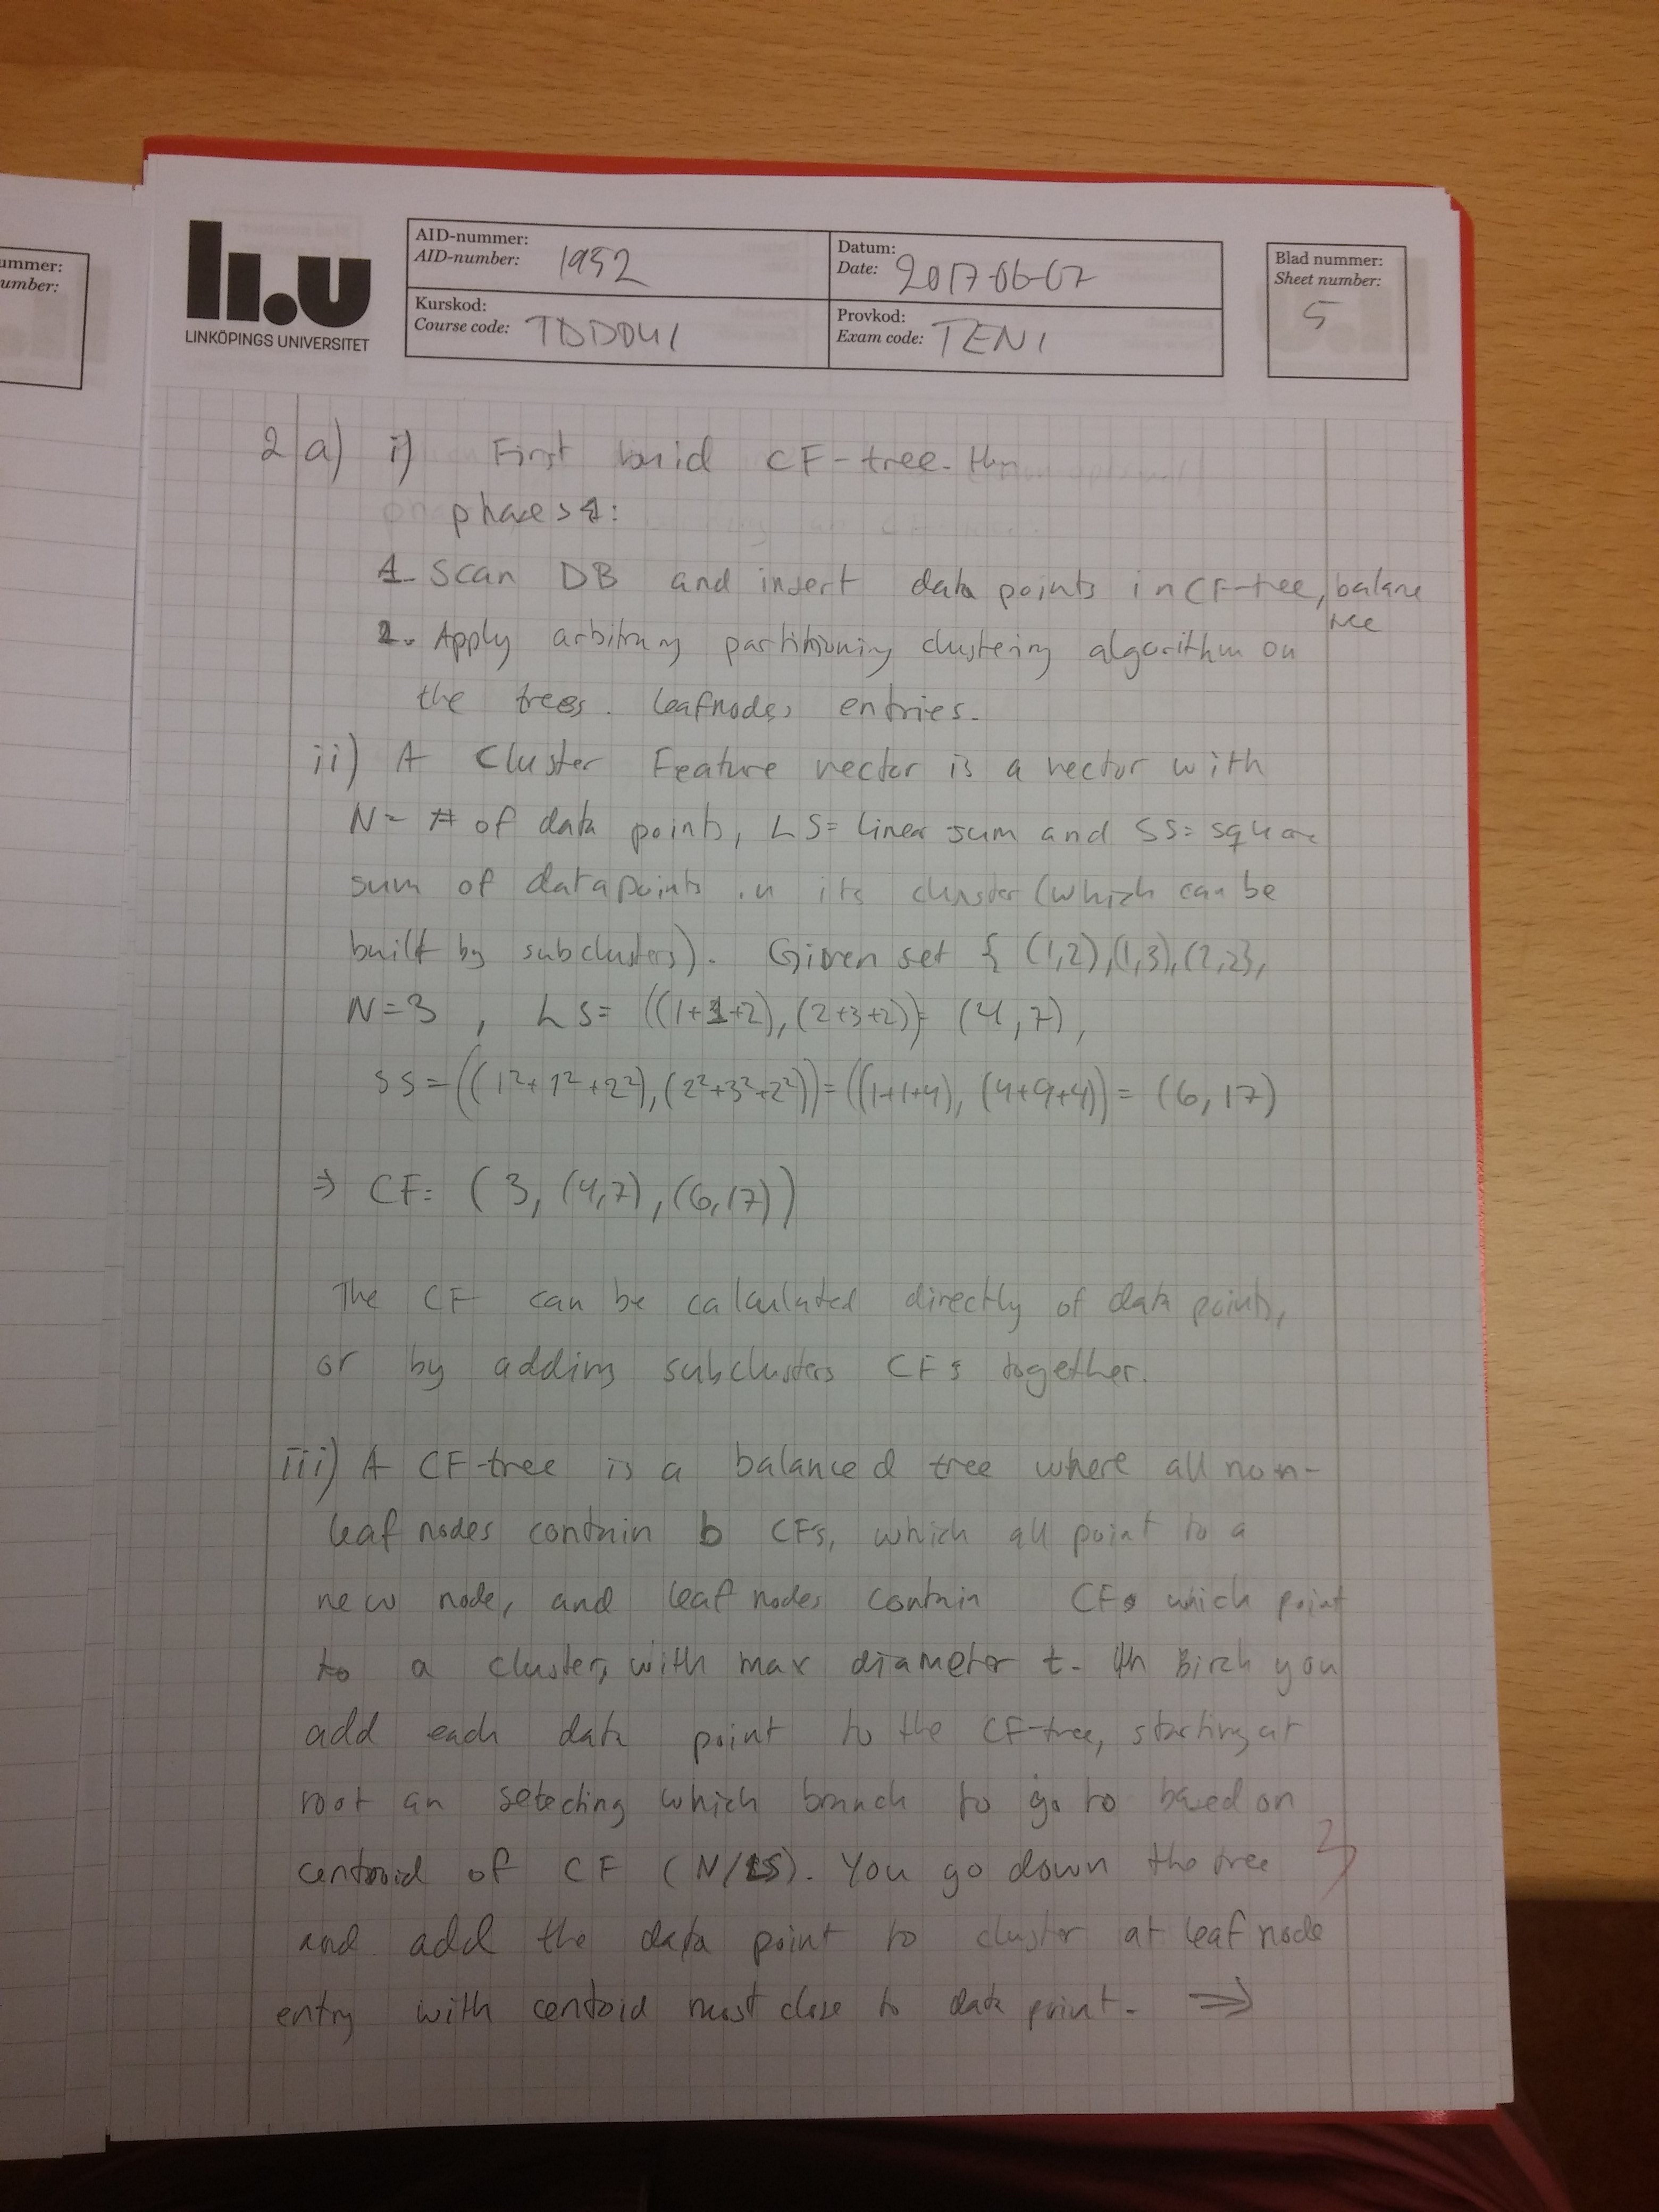 ummer:
umber:
li.u
LINKÖPINGS UNIVERSITET
AID-nummer:
AID-number: 1952
Datum:
Date: 2017-06-07
Kurskod:
Course code: TDDD41
Provkod:
Exam code: TEN1
Blad nummer:
Sheet number:
5
2 a) i) First buid CF-tree. then
phases:
1. Scan DB and insert data points in CF-tree, balance
tree
2. Apply arbitrary partitioning clustering algorithm on
the trees. leafnodes entries.
ii) A Cluster Feature vector is a vector with
N= # of data points, LS= linear sum and SS= square
sum of datapoints in its cluster (which can be
built by subclusters). Given set { (1,2),(1,3),(2,2},
N=3 , LS= ((1+1+2),(2+3+2))= (4,7),
SS=((1²+1²+2²),(2²+3²+2²))=((1+1+4), (4+9+4))= (6,17)
⇒ CF= (3, (4,7), (6,17))
The CF can be calculated directly of data points,
or by adding subclusters CFs together.
iii) A CF-tree is a balanced tree where all non-
leaf nodes contain b CFs, which all point to a
new node, and leaf nodes contain CFs which point
to a cluster, with max diameter t. In Birch you
add each data point to the CF-tree, starting at
root an selecting which branch to go to based on
centroid of CF (N/LS). You go down the tree
and add the data point to cluster at leaf node
entry with centoid most close to data point. ⇒
3